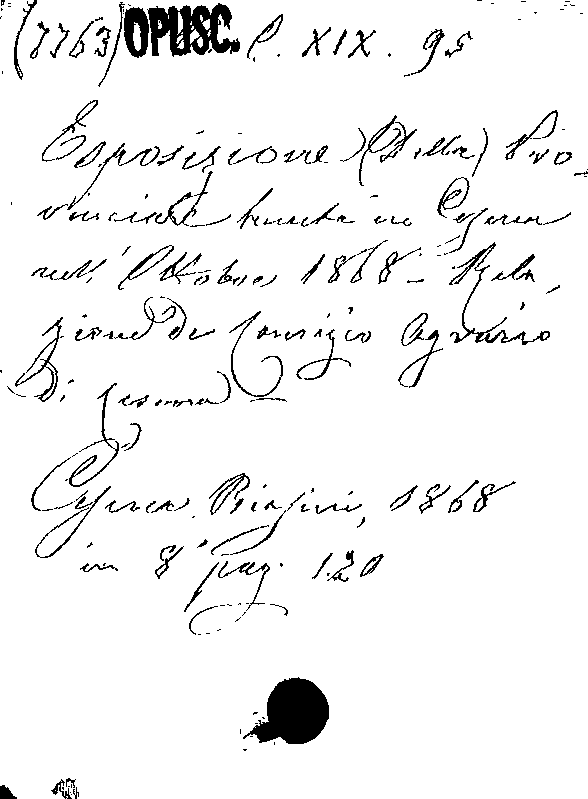 (7763) OPUSC. C. XIX. 95
Esposizione (Della) Pro-
vinciale tenuta in Cesena
nell' Ottobre 1868 - Rela-
zione del Comizio Agrario
di Cesena -
Cesena, Biasini, 1868
in 8° pag. 120